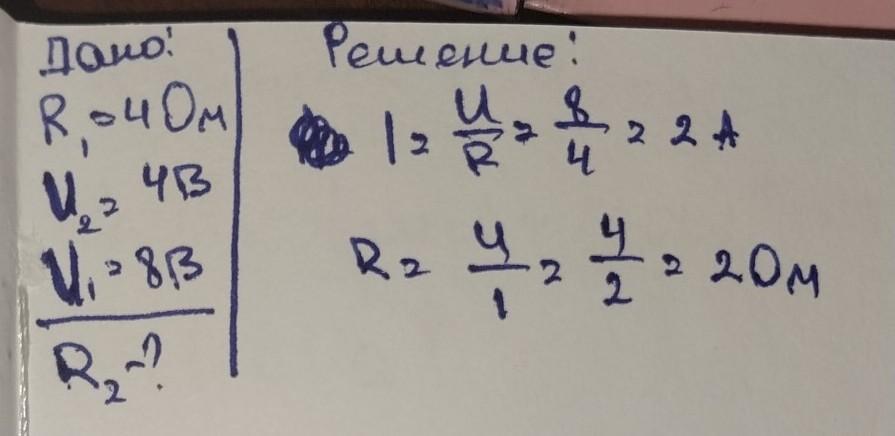 Дано:
R₁=4 Ом
U₂=4В
U₁=8В
R₂-?
Решение:
I=U/R=8/4=2 А
R=U/I=4/2=2 Ом